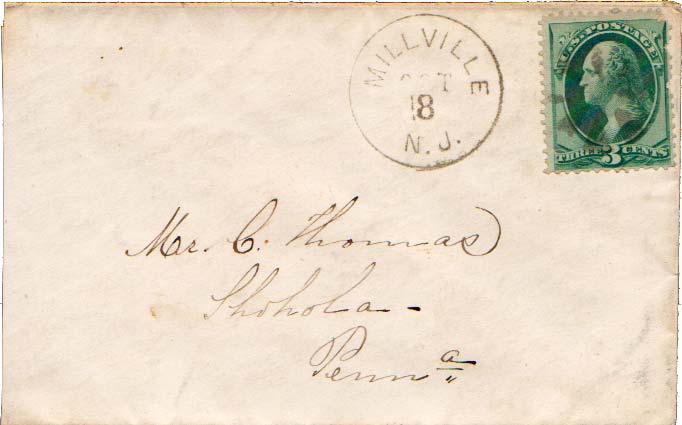 MILLVILLE
OCT
18
N.J.
U.S. POSTAGE
THREE 3 CENTS
Mr. C. Thomas
Shohola
Penna